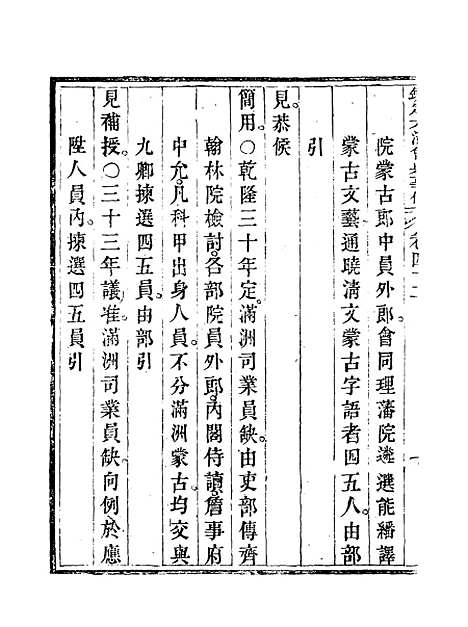 院蒙古郎中員外郎。會同理藩院遴選能繙譯
蒙古文藝通曉淸文蒙古字語者四五人。由部
引
見。恭候
簡用。○乾隆三十年定。滿洲司業員缺。由吏部傳齊
翰林院檢討。各部院員外郎。內閣侍讀。詹事府
中允。凡科甲出身人員。不分滿洲蒙古。均交與
九卿揀選四五員。由部引
見補授。○三十三年議准。滿洲司業員缺。向例於應
陞人員內。揀選四五員引